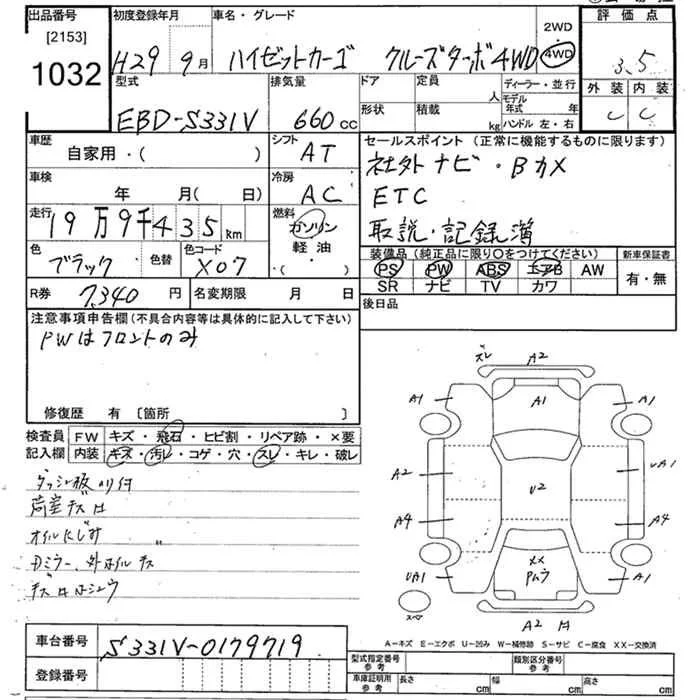 出品番号 初度登録年月 車名・グレード 2WD 評価点
[2153] H29 9月 ハイゼットカーゴ クルーズターボ4WD 4WD 3.5
1032 型式 排気量 ドア 定員 人 ディーラー・並行 外装 内装
EBD-S331V 660cc 形状 積載 kg モデル年式 年 ハンドル 左・右 C C
車歴 シフト セールスポイント (正常に機能するものに限ります)
自家用・( ) AT 社外ナビ・Bカメ
車検 冷房 ETC
年 月(日) AC 取説・記録簿
走行 燃料
19万9千435km ガソリン
軽油
・( )
色 色替 色コード 装備品 (純正品に限り○をつけてください) 新車保証書
ブラック X07 PS PW ABS エアB AW 有・無
SR ナビ TV カワ
R券 7,340円 名変期限 月 日 後日品
注意事項申告欄 (不具合内容等は具体的に記入して下さい)
PWはフロントのみ
修復歴 有 [箇所 ]
検査員 FW キズ・飛石・ヒビ割・リペア跡・×要
記入欄 内装 キズ・汚レ・コゲ・穴・スレ・キレ・破レ
荷室キズ
オイルにじみ
ズレ A2
A1 A1 A1
A2 U2 UA1
A4 A4
UA1 XX A1
PMラ
スペア A2
A-キズ E-エクボ U-凹み W-補修跡 S-サビ C-腐食 XX-交換済
車台番号 S331V-0179719
登録番号
型式指定番号 参考 類別区分番号 参考
車庫証明用 参考 長さ cm 幅 cm 高さ cm